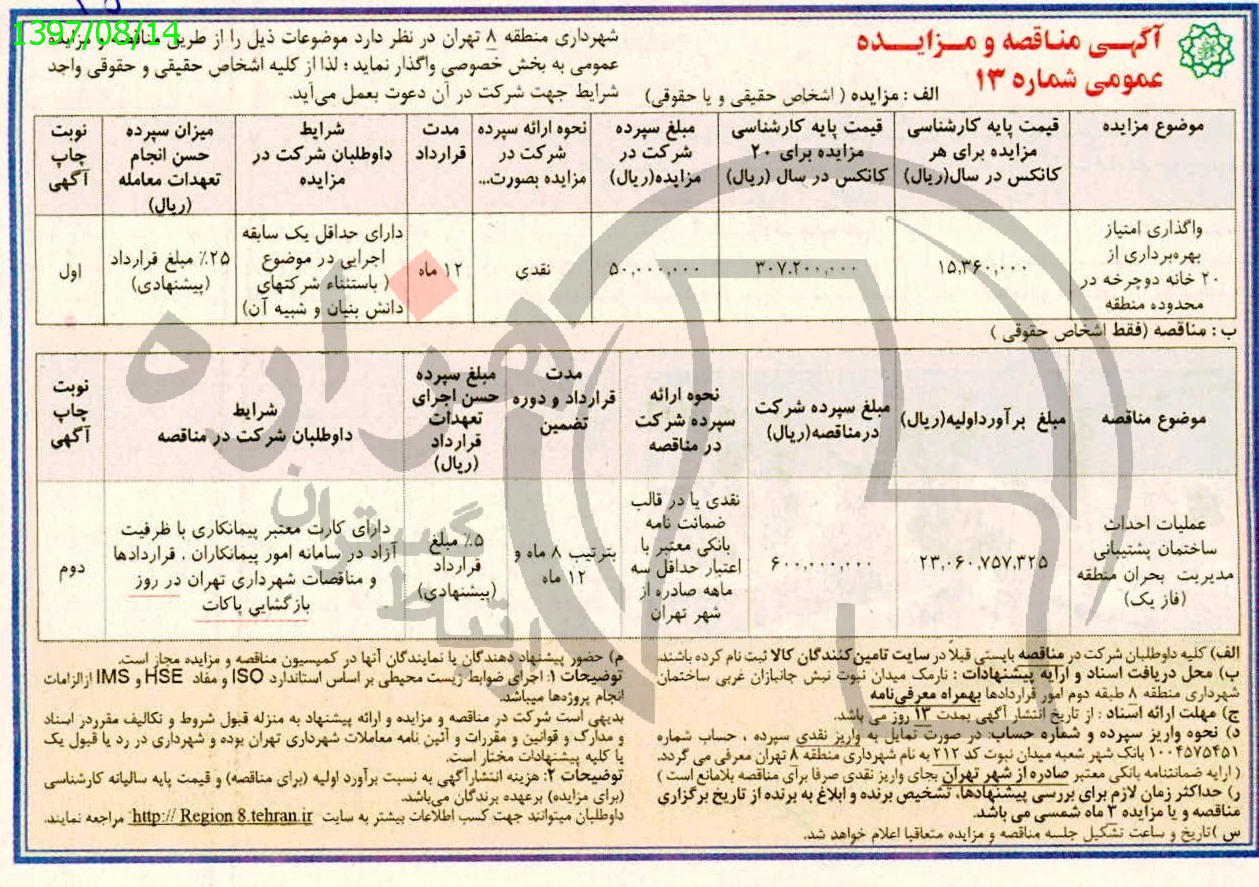 1397/08/14
آگهی مناقصه و مزایده
عمومی شماره ۱۳
شهرداری منطقه ۸ تهران در نظر دارد موضوعات ذیل را از طریق مناقصه و مزایده
عمومی به بخش خصوصی واگذار نماید ؛ لذا از کلیه اشخاص حقیقی و حقوقی واجد
شرایط جهت شرکت در آن دعوت بعمل می‌آید.
الف : مزایده ( اشخاص حقیقی و یا حقوقی)
موضوع مزایده
قیمت پایه کارشناسی
مزایده برای هر
کانکس در سال(ریال)
قیمت پایه کارشناسی
مزایده برای ۲۰
کانکس در سال (ریال)
مبلغ سپرده
شرکت در
مزایده(ریال)
نحوه ارائه سپرده
شرکت در
مزایده بصورت...
مدت
قرارداد
شرایط
داوطلبان شرکت در
مزایده
میزان سپرده
حسن انجام
تعهدات معامله
(ریال)
نوبت
چاپ
آگهی
واگذاری امتیاز
بهره‌برداری از
۲۰ خانه دوچرخه در
محدوده منطقه
۱۵.۳۶۰,۰۰۰
۳۰۷.۲۰۰,۰۰۰
۵۰,۰۰۰,۰۰۰
نقدی
۱۲ ماه
دارای حداقل یک سابقه
اجرایی در موضوع
( باستثناء شرکتهای
دانش بنیان و شبیه آن)
۲۵٪ مبلغ قرارداد
(پیشنهادی)
اول
ب : مناقصه (فقط اشخاص حقوقی )
موضوع مناقصه
مبلغ برآورداولیه(ریال)
مبلغ سپرده شرکت
درمناقصه(ریال)
نحوه ارائه
سپرده شرکت
در مناقصه
مدت
قرارداد و دوره
تضمین
مبلغ سپرده
حسن اجرای
تعهدات
قرارداد
(ریال)
شرایط
داوطلبان شرکت در مناقصه
نوبت
چاپ
آگهی
عملیات احداث
ساختمان پشتیبانی
مدیریت بحران منطقه
(فاز یک)
۲۳,۰۶۰,۷۵۷,۳۲۵
۶۰۰,۰۰۰,۰۰۰
نقدی یا در قالب
ضمانت نامه
بانکی معتبر با
اعتبار حداقل سه
ماهه صادره از
شهر تهران
بترتیب ۸ ماه و
۱۲ ماه
۵٪ مبلغ
قرارداد
(پیشنهادی)
دارای کارت معتبر پیمانکاری با ظرفیت
آزاد در سامانه امور پیمانکاران ، قراردادها
و مناقصات شهرداری تهران در روز
بازگشایی پاکات
دوم
الف) کلیه داوطلبان شرکت در مناقصه بایستی قبلاً در سایت تامین کنندگان کالا ثبت نام کرده باشند.
ب) محل دریافت اسناد و ارایه پیشنهادات : نارمک میدان نبوت نبش جانبازان غربی ساختمان
شهرداری منطقه ۸ طبقه دوم امور قراردادها بهمراه معرفی‌نامه
ج) مهلت ارائه اسناد : از تاریخ انتشار آگهی بمدت ۱۳ روز می باشد.
د) نحوه واریز سپرده و شماره حساب: در صورت تمایل به واریز نقدی سپرده ، حساب شماره
۱۰۰۴۵۷۵۴۵۱ بانک شهر شعبه میدان نبوت کد ۲۱۲ به نام شهرداری منطقه ۸ تهران معرفی می گردد.
( ارایه ضمانتنامه بانکی معتبر صادره از شهر تهران بجای واریز نقدی صرفا برای مناقصه بلامانع است )
ر) حداکثر زمان لازم برای بررسی پیشنهادها، تشخیص برنده و ابلاغ به برنده از تاریخ برگزاری
مناقصه و یا مزایده ۳ ماه شمسی می باشد.
س )تاریخ و ساعت تشکیل جلسه مناقصه و مزایده متعاقبا اعلام خواهد شد.
م) حضور پیشنهاد دهندگان یا نمایندگان آنها در کمیسیون مناقصه و مزایده مجاز است.
توضیحات ۱: اجرای ضوابط زیست محیطی بر اساس استاندارد ISO و مفاد HSE و IMS ازالزامات
انجام پروژه‌ها میباشد.
بدیهی است شرکت در مناقصه و مزایده و ارائه پیشنهاد به منزله قبول شروط و تکالیف مقرردر اسناد
و مدارک و قوانین و مقررات و آئین نامه معاملات شهرداری تهران بوده و شهرداری در رد یا قبول یک
یا کلیه پیشنهادات مختار است.
توضیحات ۲: هزینه انتشارآگهی به نسبت برآورد اولیه (برای مناقصه) و قیمت پایه سالیانه کارشناسی
(برای مزایده) برعهده برندگان می‌باشد.
داوطلبان میتوانند جهت کسب اطلاعات بیشتر به سایت http:// Region 8.tehran.ir مراجعه نمایند.
هزاره
ارتباط گستران